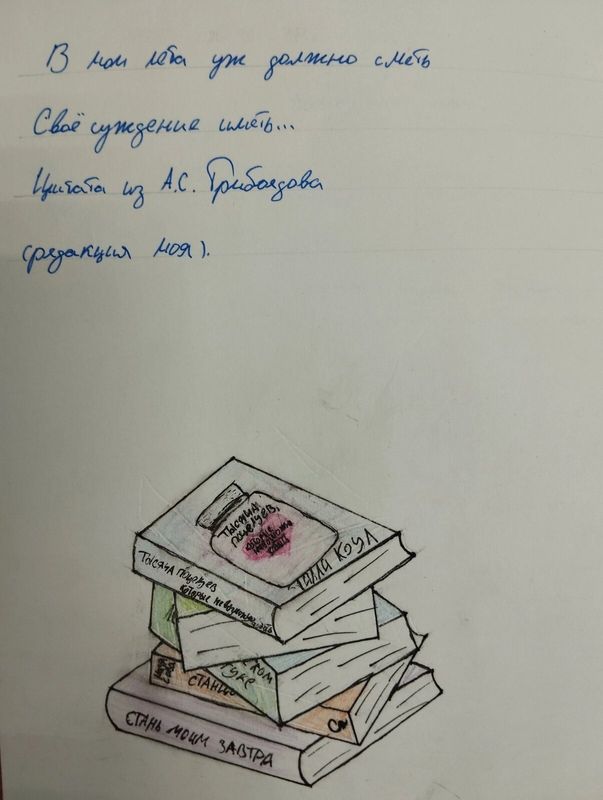 В мои лета уж должно сметь
Своё суждение иметь...
Цитата из А.С. Грибоедова
(редакция моя).
Тысяча
поцелуев,
которые
невозможно
ТИЛЛИ КОУЛ
Тысяча поцелуев
которые невозможно
СТАНЬ МОИМ ЗАВТРА